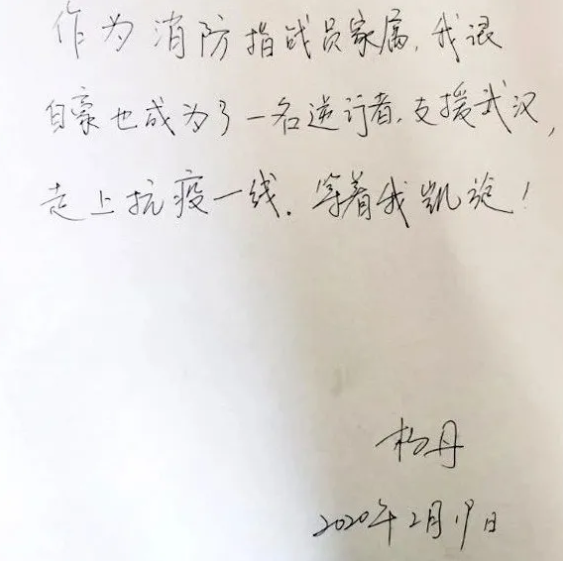 作为消防指战员家属,我很
自豪也成为了一名逆行者.支援武汉,
走上抗疫一线.等着我凯旋!
杨丹
2020年2月19日